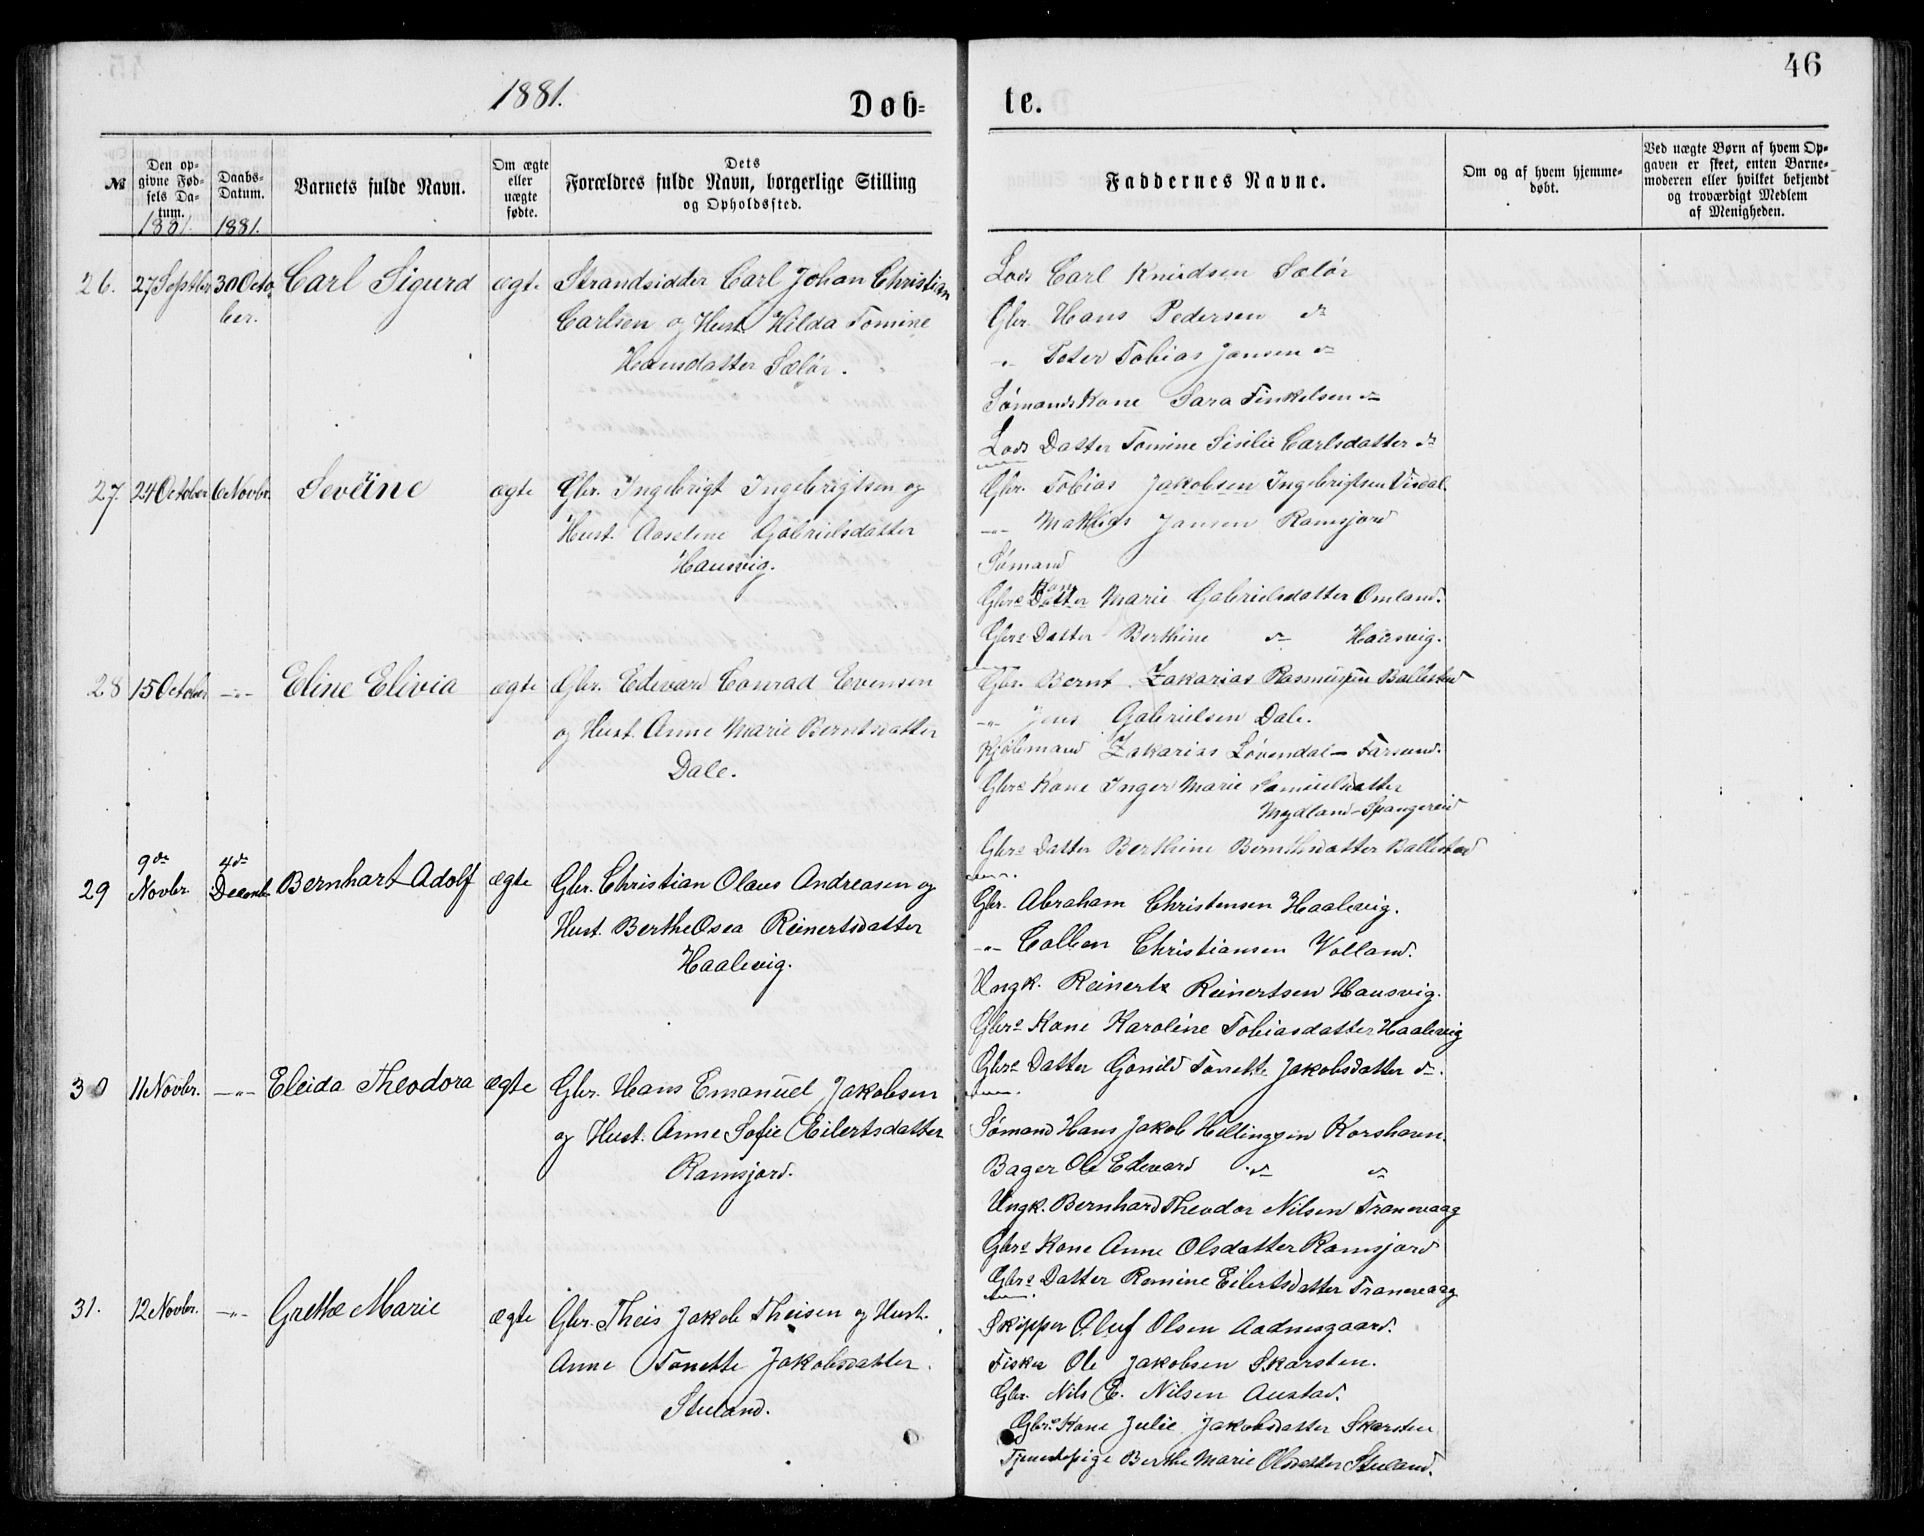 46
1881.
Døb=
te.
№
Den op=
givne Fød=
sels Da=
tum.
1881.
Daabs=
Datum.
1881.
Barnets fulde Navn.
Om ægte
eller
uægte
fødte.
Dets
Forældres fulde Navn, borgerlige Stilling
og Opholdssted.
Faddernes Navne.
Om og af hvem hjemme=
døbt.
Ved uægte Børn af hvem Op=
gaven er skeet, enten Barne=
moderen eller hvilket bekjendt
og troværdigt Medlem
af Menigheden.
26. 27 Septbr 30 Octo= Carl Sigurd ægte Strandsidder Carl Johan Christian
ber. Carlsen og Hust. Hilda Tomine
Hansdatter Sælør.
Lods Carl Knudsen Sælør
Gbr. Hans Pedersen do
-"- Peter Tobias Jansen do
Sømands Kone Sara Finkelsen do
Lods Datter Tomine Sisilie Carlsdatter do
27 24 October 6 Novbr. Sevrine ægte Gbr. Ingebrigt Ingebrigtsen og
Hust. Aaselene Gabrielsdatter
Hausvig.
Gbr. Tobias Jakobsen Ingebrigtsen Visdal.
-"- Mathias Jansen Ramsjord
Sømand
Kone
Gbrs Datter Marie Gabrielsdatter Omland.
Gbrs Datter Berthine do Hausvig.
28 15 October -"- Eline Elivia ægte Gbr. Edevard Conrad Evensen
og Hust. Anne Marie Berntsdatter
Dale.
Gbr. Bernt Zakarias Rasmussen Ballestad
-"- Jens Gabrielsen Dale.
Kjøbmand Zakarias Løvendal - Farsund.
Gbrs Kone Inger Marie Samuelsdatter
Mydland - Spangereid
Gbrs Datter Berthine Berntsdatter Ballestad
29 9de Novbr. 4de Decembr. Bernhart Adolf ægte Gbr. Christian Olaus Andreasen og
Hust. Berthe Osea Reinertsdatter
Haalevig.
Gbr. Abraham Christensen Haalevig.
-"- Colben Christiansen Volland.
Ungk. Reinert Reinertsen Hausvig.
Gbrs Kone Karoline Tobiasdatter Haalevig
Gbrs Datter Gonild Tonette Jakobsdatter do.
30 11 Novbr. -"- Eleida Theodora ægte Gbr. Hans Emanuel Jakobsen
og Hust. Anne Sofie Eilertsdatter
Ramsjord.
Sømand Hans Jakob Hellingsen Korshavn.
Bager Ole Edevard do do
Ungk. Bernhard Theodor Nilsen Tranevaag
Gbrs Kone Anne Olsdatter Ramsjord
Gbrs Datter Romine Eilertsdatter Tranevaag
31. 12 Novbr. -"- Grethe Marie ægte Gbr. Theis Jakob Theisen og Hust.
Anne Tonette Jakobsdatter.
Stuland.
Skipper Oluf Olsen Aadnesgaard.
Fisker Ole Jakobsen Skarsten.
Gbr. Nils E. Nilsen Austad.
Gbrs Kone Julie Jakobsdatter Skarsten
Tjenestepige Berthe Marie Olsdatter Stuland.